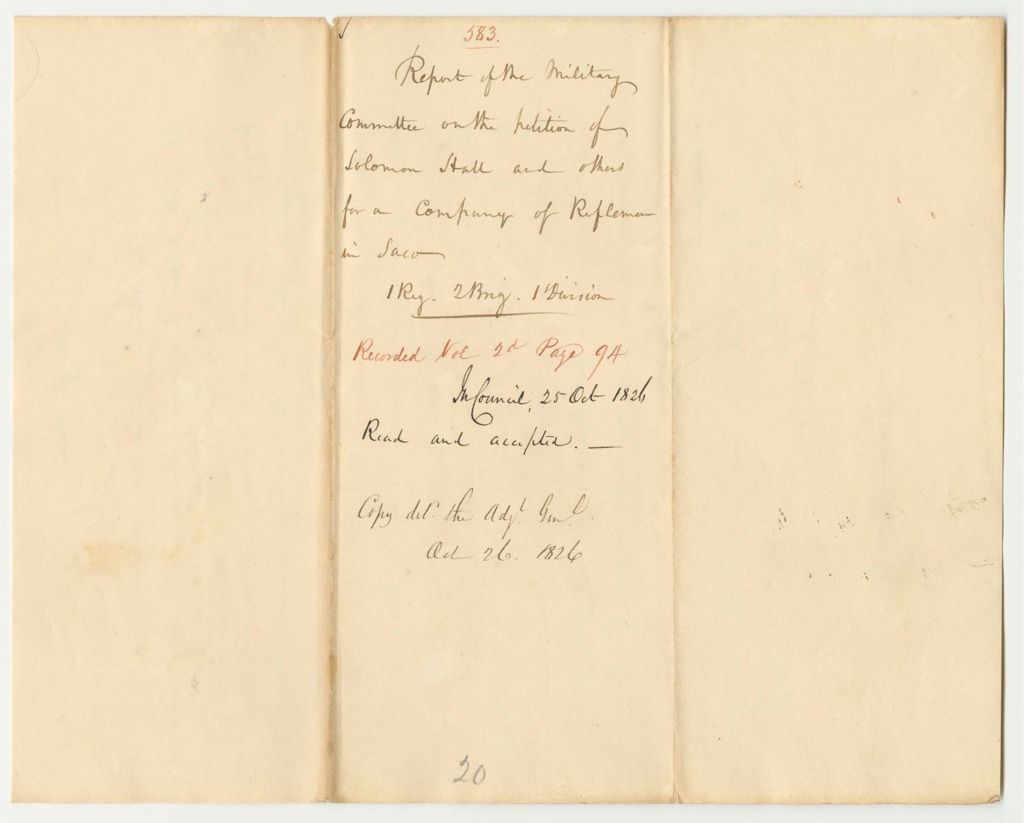 583.
Report of the Military
Committee on the petition of
Solomon Hall and others
for a Company of Riflemen
in Saco
1 Reg. 2 Brig. 1st Division
Recorded Vol. 2d Page 94
In Council, 25 Oct 1826
Read and accepted. —
Copy deld. the Adjt. Genl.
Oct 26. 1826
20